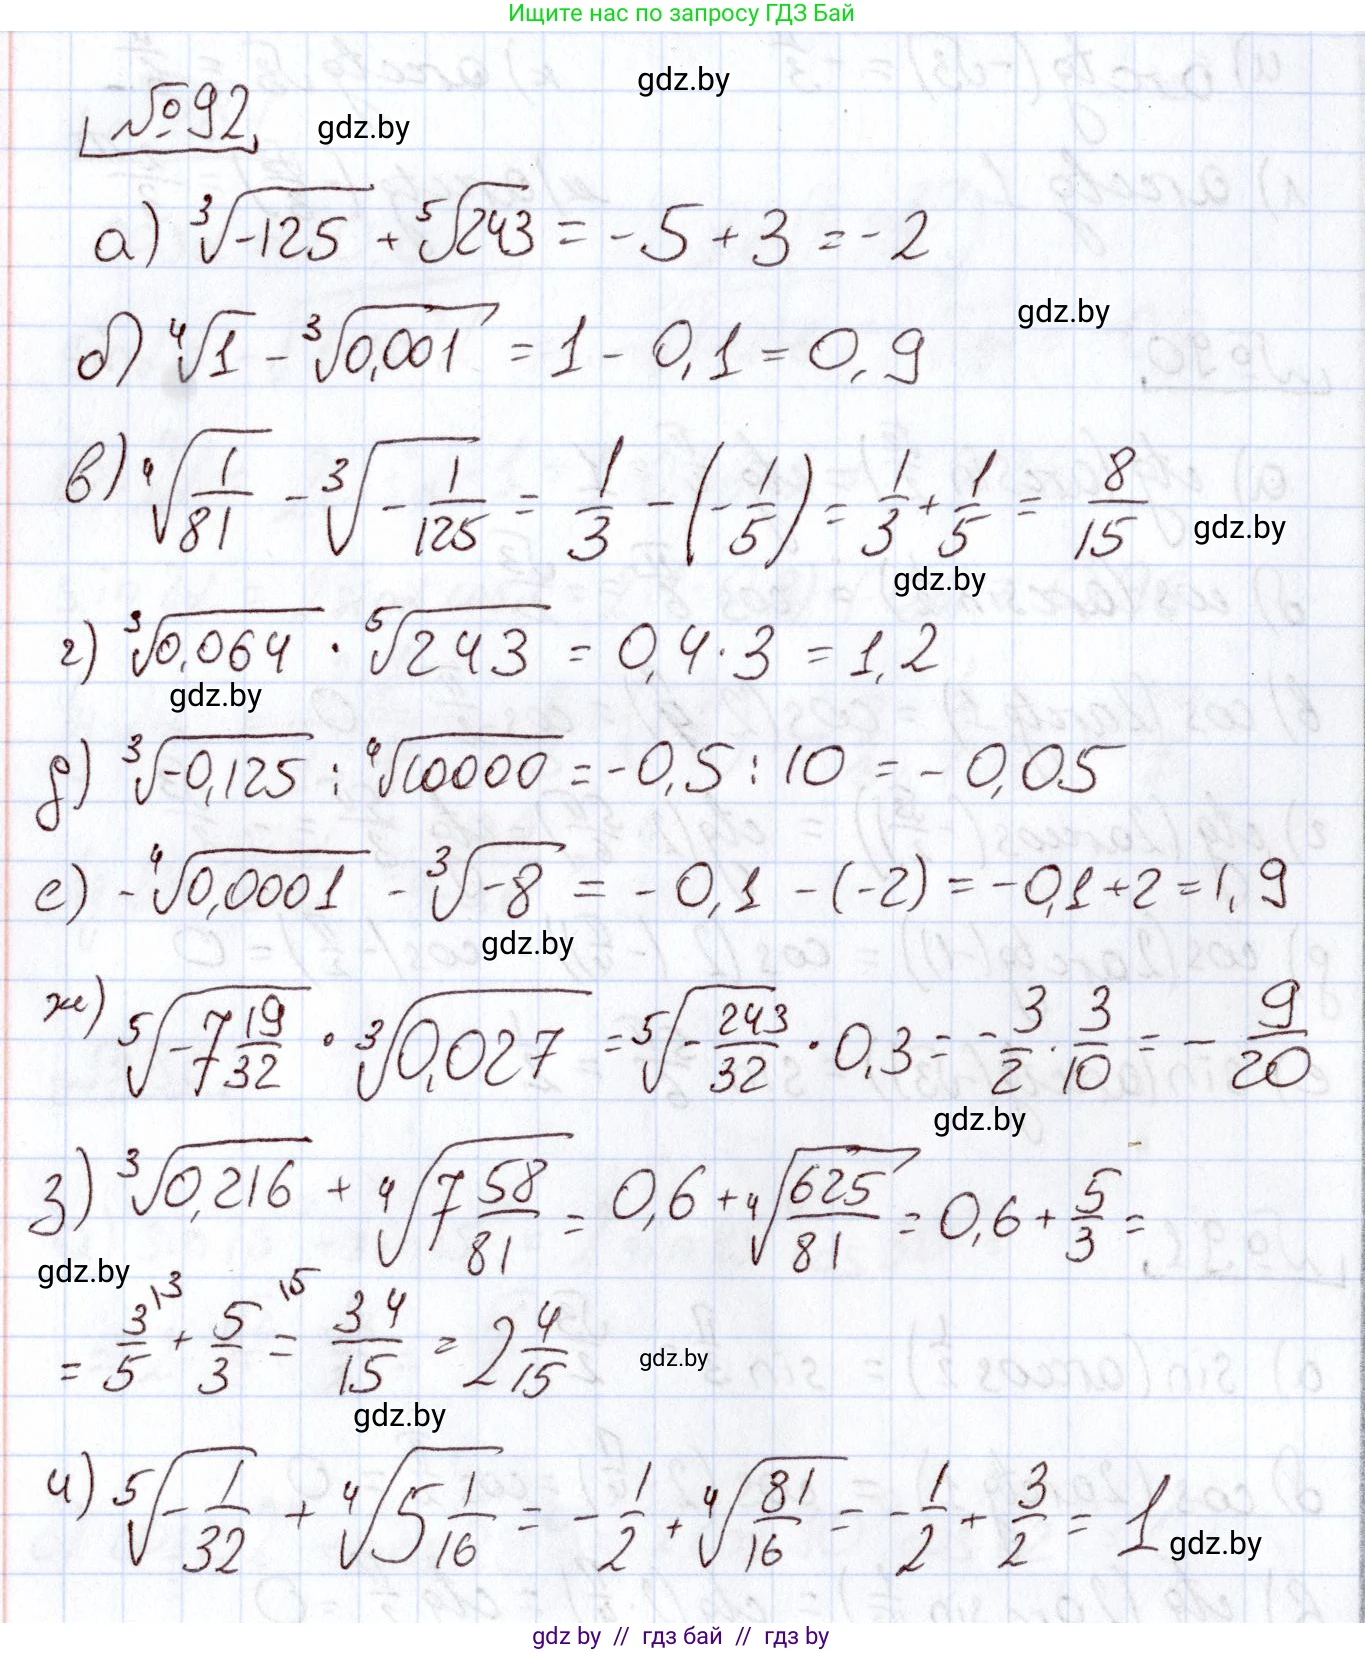 Ищите нас по запросу ГДЗ Бай
gdz.by
№92
gdz.by
а) ∛(-125) + ⁵√243 = -5 + 3 = -2
gdz.by
б) ⁴√1 - ∛(0,001) = 1 - 0,1 = 0,9
в) ⁴√(1/81) - ∛(-1/125) = 1/3 - (-1/5) = 1/3 + 1/5 = 8/15
gdz.by
gdz.by
г) ∛(0,064) · ⁵√243 = 0,4 · 3 = 1,2
gdz.by
д) ∛(-0,125) : ⁴√10000 = -0,5 : 10 = -0,05
е) -⁴√(0,0001) - ∛(-8) = -0,1 - (-2) = -0,1 + 2 = 1,9
gdz.by
ж) ⁵√(-7 19/32) · ∛(0,027) = ⁵√(-243/32) · 0,3 = -3/2 · 3/10 = -9/20
gdz.by
з) ∛(0,216) + ⁴√(7 58/81) = 0,6 + ⁴√(625/81) = 0,6 + 5/3 =
gdz.by
= 3/5 ⁽³ + 5/3 ⁽⁵ = 34/15 = 2 4/15
gdz.by
gdz.by
и) ⁵√(-1/32) + ⁴√(5 1/16) = -1/2 + ⁴√(81/16) = -1/2 + 3/2 = 1
gdz.by
gdz by // гдз бай // гдз by